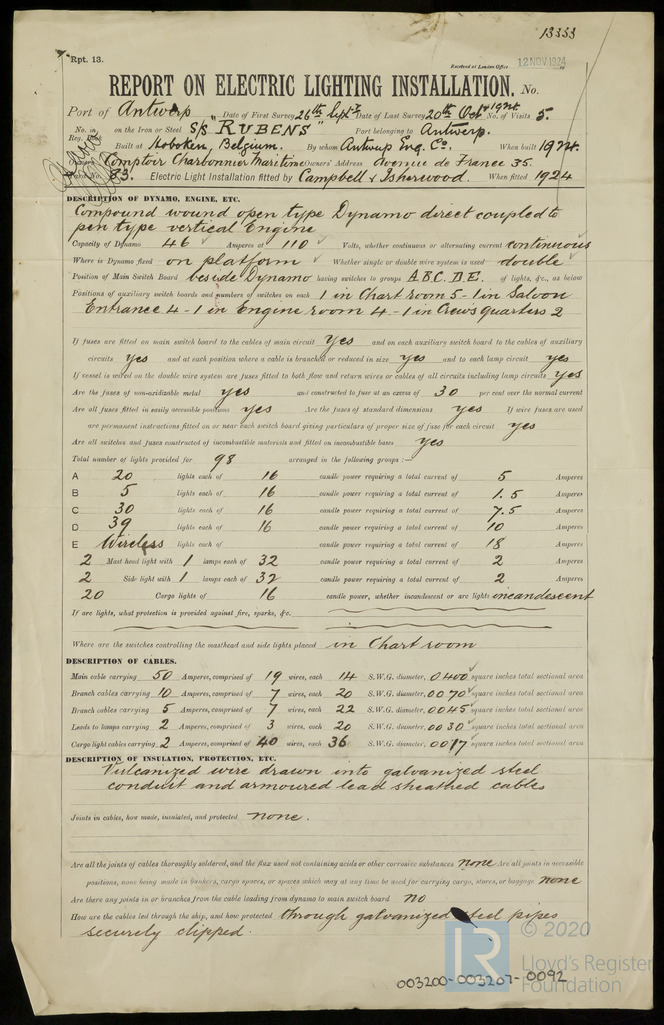 13353
Rpt. 13.
Received at London Office 12 NOV. 1924
REPORT ON ELECTRIC LIGHTING INSTALLATION. No.
Port of Antwerp Date of First Survey 26th Sept. Date of Last Survey 20th Oct. 1924 No. of Visits 5.
No. in on the Iron or Steel S/S "RUBENS" Port belonging to Antwerp.
Reg. Built at Hoboken, Belgium. By whom Antwerp Eng. Co. When built 1924.
Comptoir Charbonnier Maritime Owners' Address avenue de France 35.
83. Electric Light Installation fitted by Campbell & Isherwood. When fitted 1924
DESCRIPTION OF DYNAMO, ENGINE, ETC.
Compound wound open type Dynamo direct coupled to
pen type vertical Engine
Capacity of Dynamo 46 Amperes at 110 Volts, whether continuous or alternating current continuous
Where is Dynamo fixed on platform Whether single or double wire system is used double
Position of Main Switch Board beside Dynamo having switches to groups A.B.C.D.E. of lights, &c., as below
Positions of auxiliary switch boards and numbers of switches on each 1 in Chart room 5 - 1 in Saloon
Entrance 4 - 1 in Engine room 4 - 1 in Crews quarters 2
If fuses are fitted on main switch board to the cables of main circuit yes and on each auxiliary switch board to the cables of auxiliary
circuits yes and at each position where a cable is branched or reduced in size yes and to each lamp circuit yes
If vessel is wired on the double wire system are fuses fitted to both flow and return wires or cables of all circuits including lamp circuits yes
Are the fuses of non-oxidizable metal yes and constructed to fuse at an excess of 30 per cent over the normal current
Are all fuses fitted in easily accessible positions yes Are the fuses of standard dimensions yes If wire fuses are used
are permanent instructions fitted on or near each switch board giving particulars of proper size of fuse for each circuit yes
Are all switches and fuses constructed of incombustible materials and fitted on incombustible bases yes
Total number of lights provided for 98 arranged in the following groups :—
A 20 lights each of 16 candle power requiring a total current of 5 Amperes
B 5 lights each of 16 candle power requiring a total current of 1.5 Amperes
C 30 lights each of 16 candle power requiring a total current of 7.5 Amperes
D 39 lights each of 16 candle power requiring a total current of 10 Amperes
E Wireless lights each of candle power requiring a total current of 18 Amperes
2 Mast head light with 1 lamps each of 32 candle power requiring a total current of 2 Amperes
2 Side light with 1 lamps each of 32 candle power requiring a total current of 2 Amperes
20 Cargo lights of 16 candle power, whether incandescent or arc lights incandescent
If arc lights, what protection is provided against fire, sparks, &c.
Where are the switches controlling the masthead and side lights placed in Chart room
DESCRIPTION OF CABLES.
Main cable carrying 50 Amperes, comprised of 19 wires, each 14 S.W.G. diameter, 0400 square inches total sectional area
Branch cables carrying 10 Amperes, comprised of 7 wires, each 20 S.W.G. diameter, 0070 square inches total sectional area
Branch cables carrying 5 Amperes, comprised of 7 wires, each 22 S.W.G. diameter, 0045 square inches total sectional area
Leads to lamps carrying 2 Amperes, comprised of 3 wires, each 20 S.W.G. diameter, 0030 square inches total sectional area
Cargo light cables carrying 2 Amperes, comprised of 40 wires, each 36 S.W.G. diameter, 0017 square inches total sectional area
DESCRIPTION OF INSULATION, PROTECTION, ETC.
Vulcanized wire drawn into galvanized steel
conduit and armoured lead sheathed cables
Joints in cables, how made, insulated, and protected none.
Are all the joints of cables thoroughly soldered, and the flux used not containing acids or other corrosive substances none Are all joints in accessible
positions, none being made in bunkers, cargo spaces, or spaces which may at any time be used for carrying cargo, stores, or baggage none
Are there any joints in or branches from the cable leading from dynamo to main switch board no
How are the cables led through the ship, and how protected through galvanized steel pipes
securely clipped.
© 2020
LR
Lloyd's Register
Foundation
003200-003207-0092